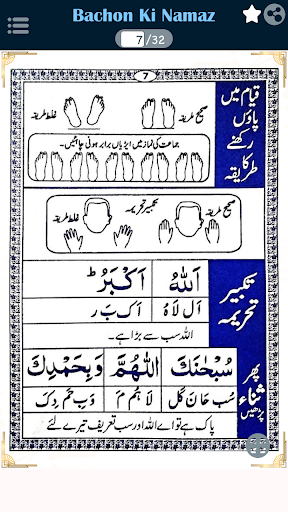 Bachon Ki Namaz
7/32
7
قیام میں
پاؤں
رکھنے
کا طریقہ
صحیح طریقہ
غلط طریقہ
جماعت کی نماز میں ایڑیاں برابر ہونی چاہئیں۔
تکبیر تحریمہ
صحیح طریقہ
غلط طریقہ
تکبیر
تحریمہ
اَللّٰهُ اَكْبَرُ ط
اَل لَا هُ اَک بَ ر
اللہ سب سے بڑا ہے۔
پھر
ثناء
پڑھیں
سُبْحٰنَكَ اللّٰهُمَّ وَبِحَمْدِكَ
سُب حَانَ کَل لَا هُم مَ وَ بِ حَم دِ کَ
پاک ہے تو اے اللہ اور سب تعریف تیرے لئے